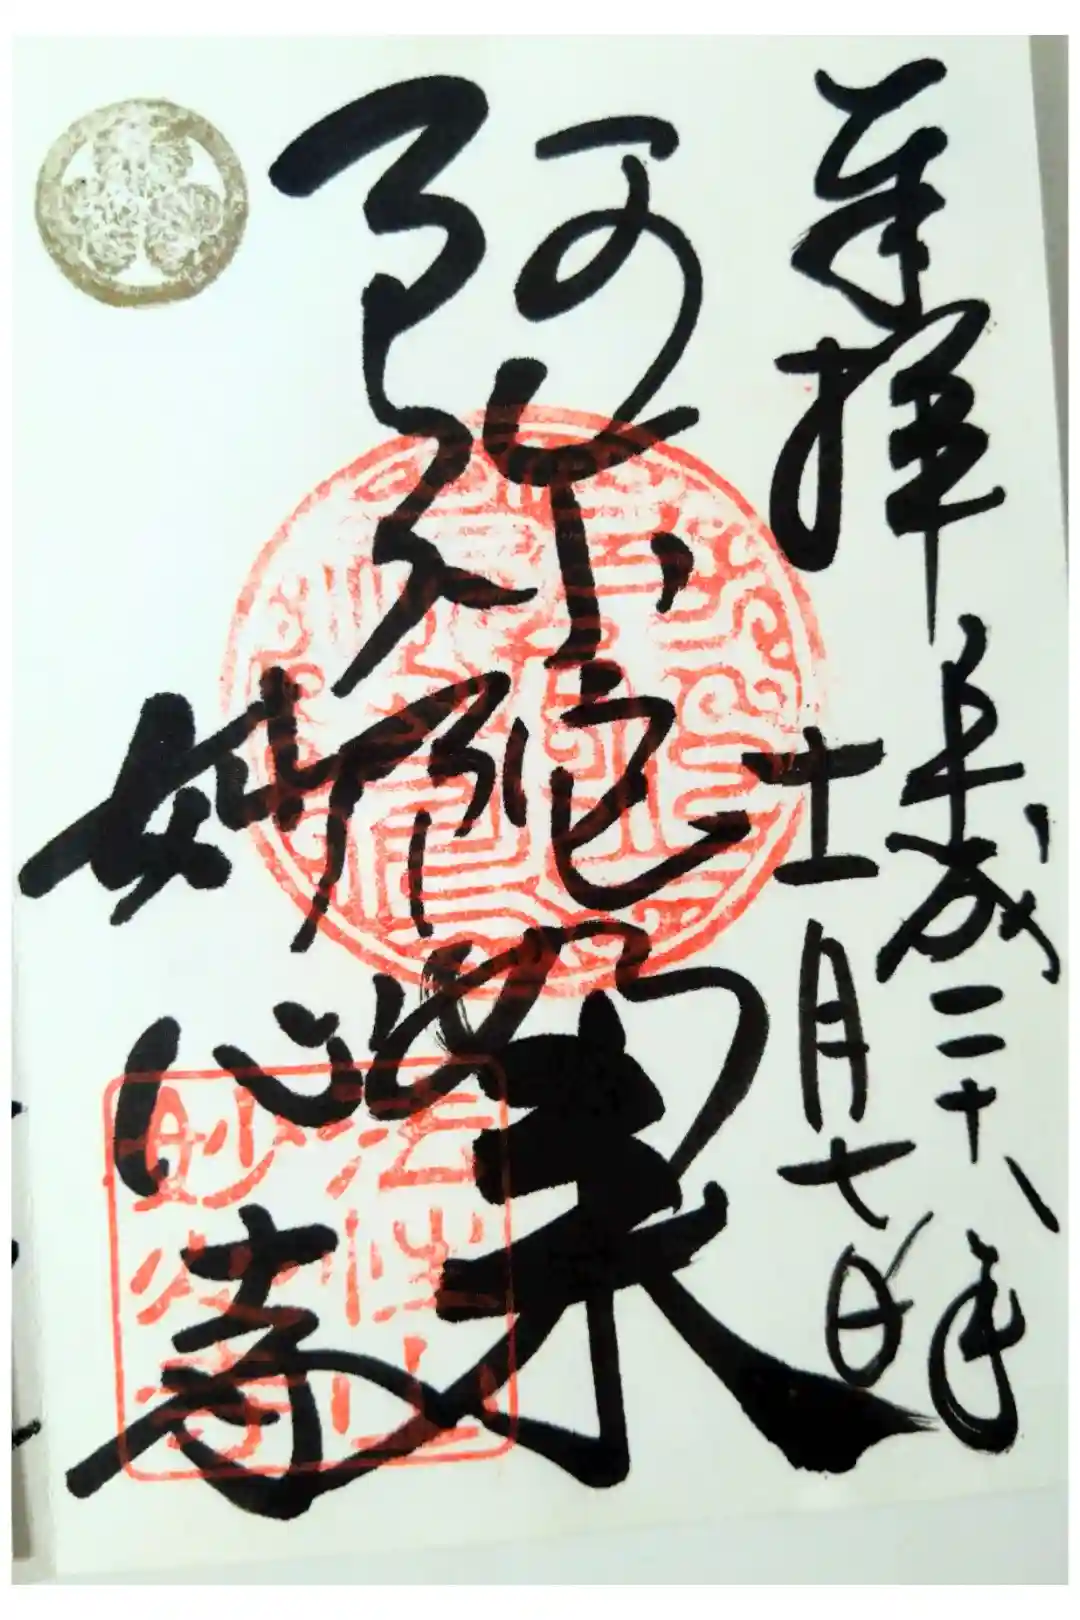 奉拝
平成二十八年
十一月七日
阿弥陀如来
妙心寺
法性山
妙心寺